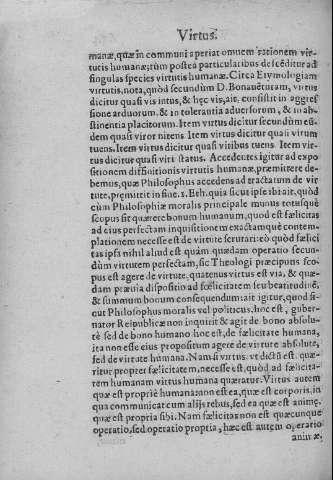 Virtus.
manæ, quæ in communi aperiat omnem rationem vir-
tutis humanæ; tùm postea particularibus descēditur ad
singulas species virtutis humanæ. Circa Etymologiam
virtutis, nota, quòd secundùm D. Bonauēturam, virtus
dicitur quasi vis intus, & hęc vis, ait, consistit in aggres-
sione arduorum, & in tolerantia aduersorum, & in ab-
stinentia placitorum. Item virtus dicitur secundùm eū-
dem quasi viror nitens. Item virtus dicitur quasi virum
tuens. Item virtus dicitur quasi viribus tuens. Item vir-
tus dicitur quasi viri status. Accedentes igitur ad expo-
sitionem diffinitionis virtutis humanæ, præmittere de-
bemus, quæ Philosophus accedens ad tractatum de vir-
tute, præmittit in fine. 1. Eth. quia sicut ipse ibi ait, quòd
cùm Philosophiæ moralis principale munus totusq́;
scopus sit quærere bonum humanum, quod est fœlicitas
ad eius perfectam inquisitionem exactamq́ue contem-
plationem necesse est de virtute scrutari: eò quòd fœlici
tas ipsa nihil aliud est quàm quædam operatio secun-
dùm virtutem perfectam, sic Theologi præcipuus sco-
pus est agere de virtute, quatenus virtus est via, & quæ-
dam præuia dispositio ad fœlicitatem seu beatitudinē,
& summum bonum consequendum: ait igitur, quòd si-
cut Philosophus moralis vel politicus, hoc est, guber-
nator Reipublicæ non inquirit & agit de bono absolu-
tè sed de bono humano hoc est, de fœlicitate humana,
ita non esse eius propositum agere de virtute absolute,
sed de virtute humana. Nam si virtus, vt dictū est, quæ-
ritur propter fœlicitatem, necesse est, quòd ad fœlicita-
tem humanam virtus humana quæratur. Virtus autem
quæ est propriè humana: non est ea, quæ est corporis, in
qua communicat cum alijs rebus, sed ea quæ est animę,
quæ est propria sibi. Nam fœlicitas non est quæcunque
operatio, sed operatio propria, hæc est autem operatio
animæ,